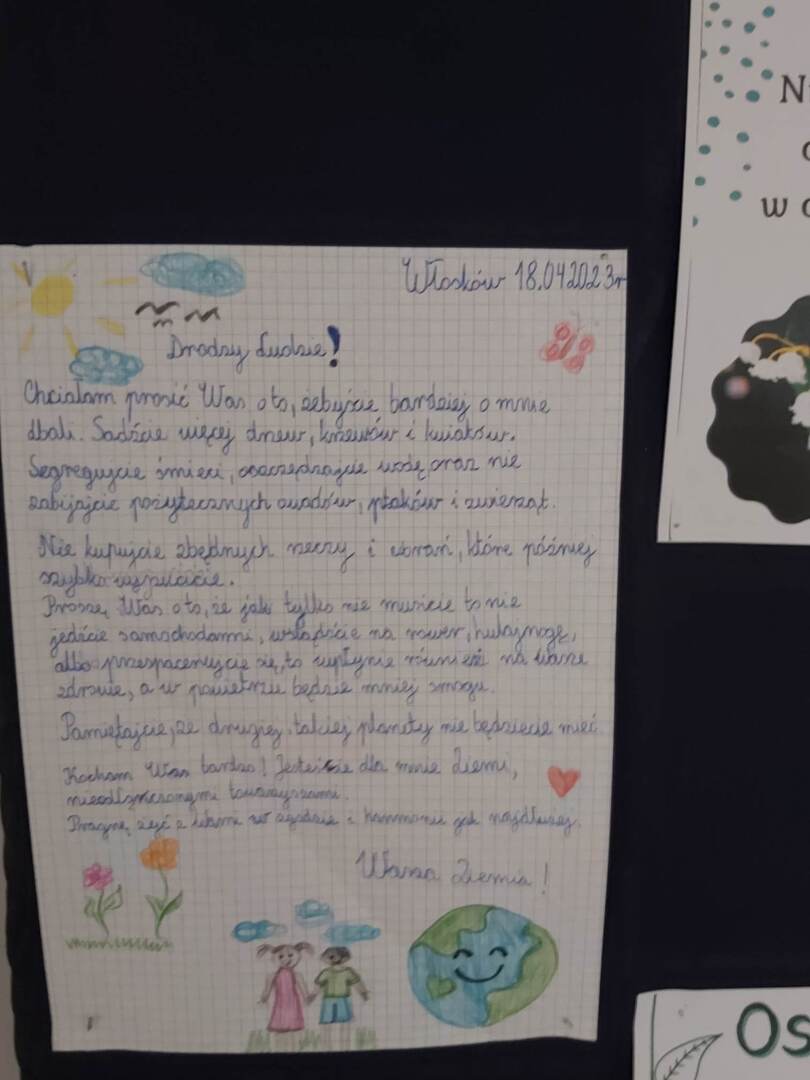 Włosków 18.04.2023r
Drodzy Ludzie!
Chciałam prosić Was o to, żebyście bardziej o mnie
dbali. Sadźcie więcej drzew, krzewów i kwiatów.
Segregujcie śmieci, oszczędzajcie wodę oraz nie
zabijajcie pożytecznych owadów, ptaków i zwierząt.
Nie kupujcie zbędnych rzeczy i ubrań, które później
szybko
Proszę Was o to, że jak tylko nie musicie to nie
jedźcie samochodami, wsiądźcie na rower, hulajnogę,
albo przespacerujcie się, to wpłynie również na wasze
zdrowie, a w powietrzu będzie mniej smogu.
Pamiętajcie, że drugiej takiej planety nie będziecie mieć.
Kocham Was bardzo! Jesteście dla mnie Ziemi,
nieodłącznymi towarzyszami.
Pragnę żyć z Wami w zgodzie i harmonii jak najdłużej.
Wasza Ziemia!
w
Os